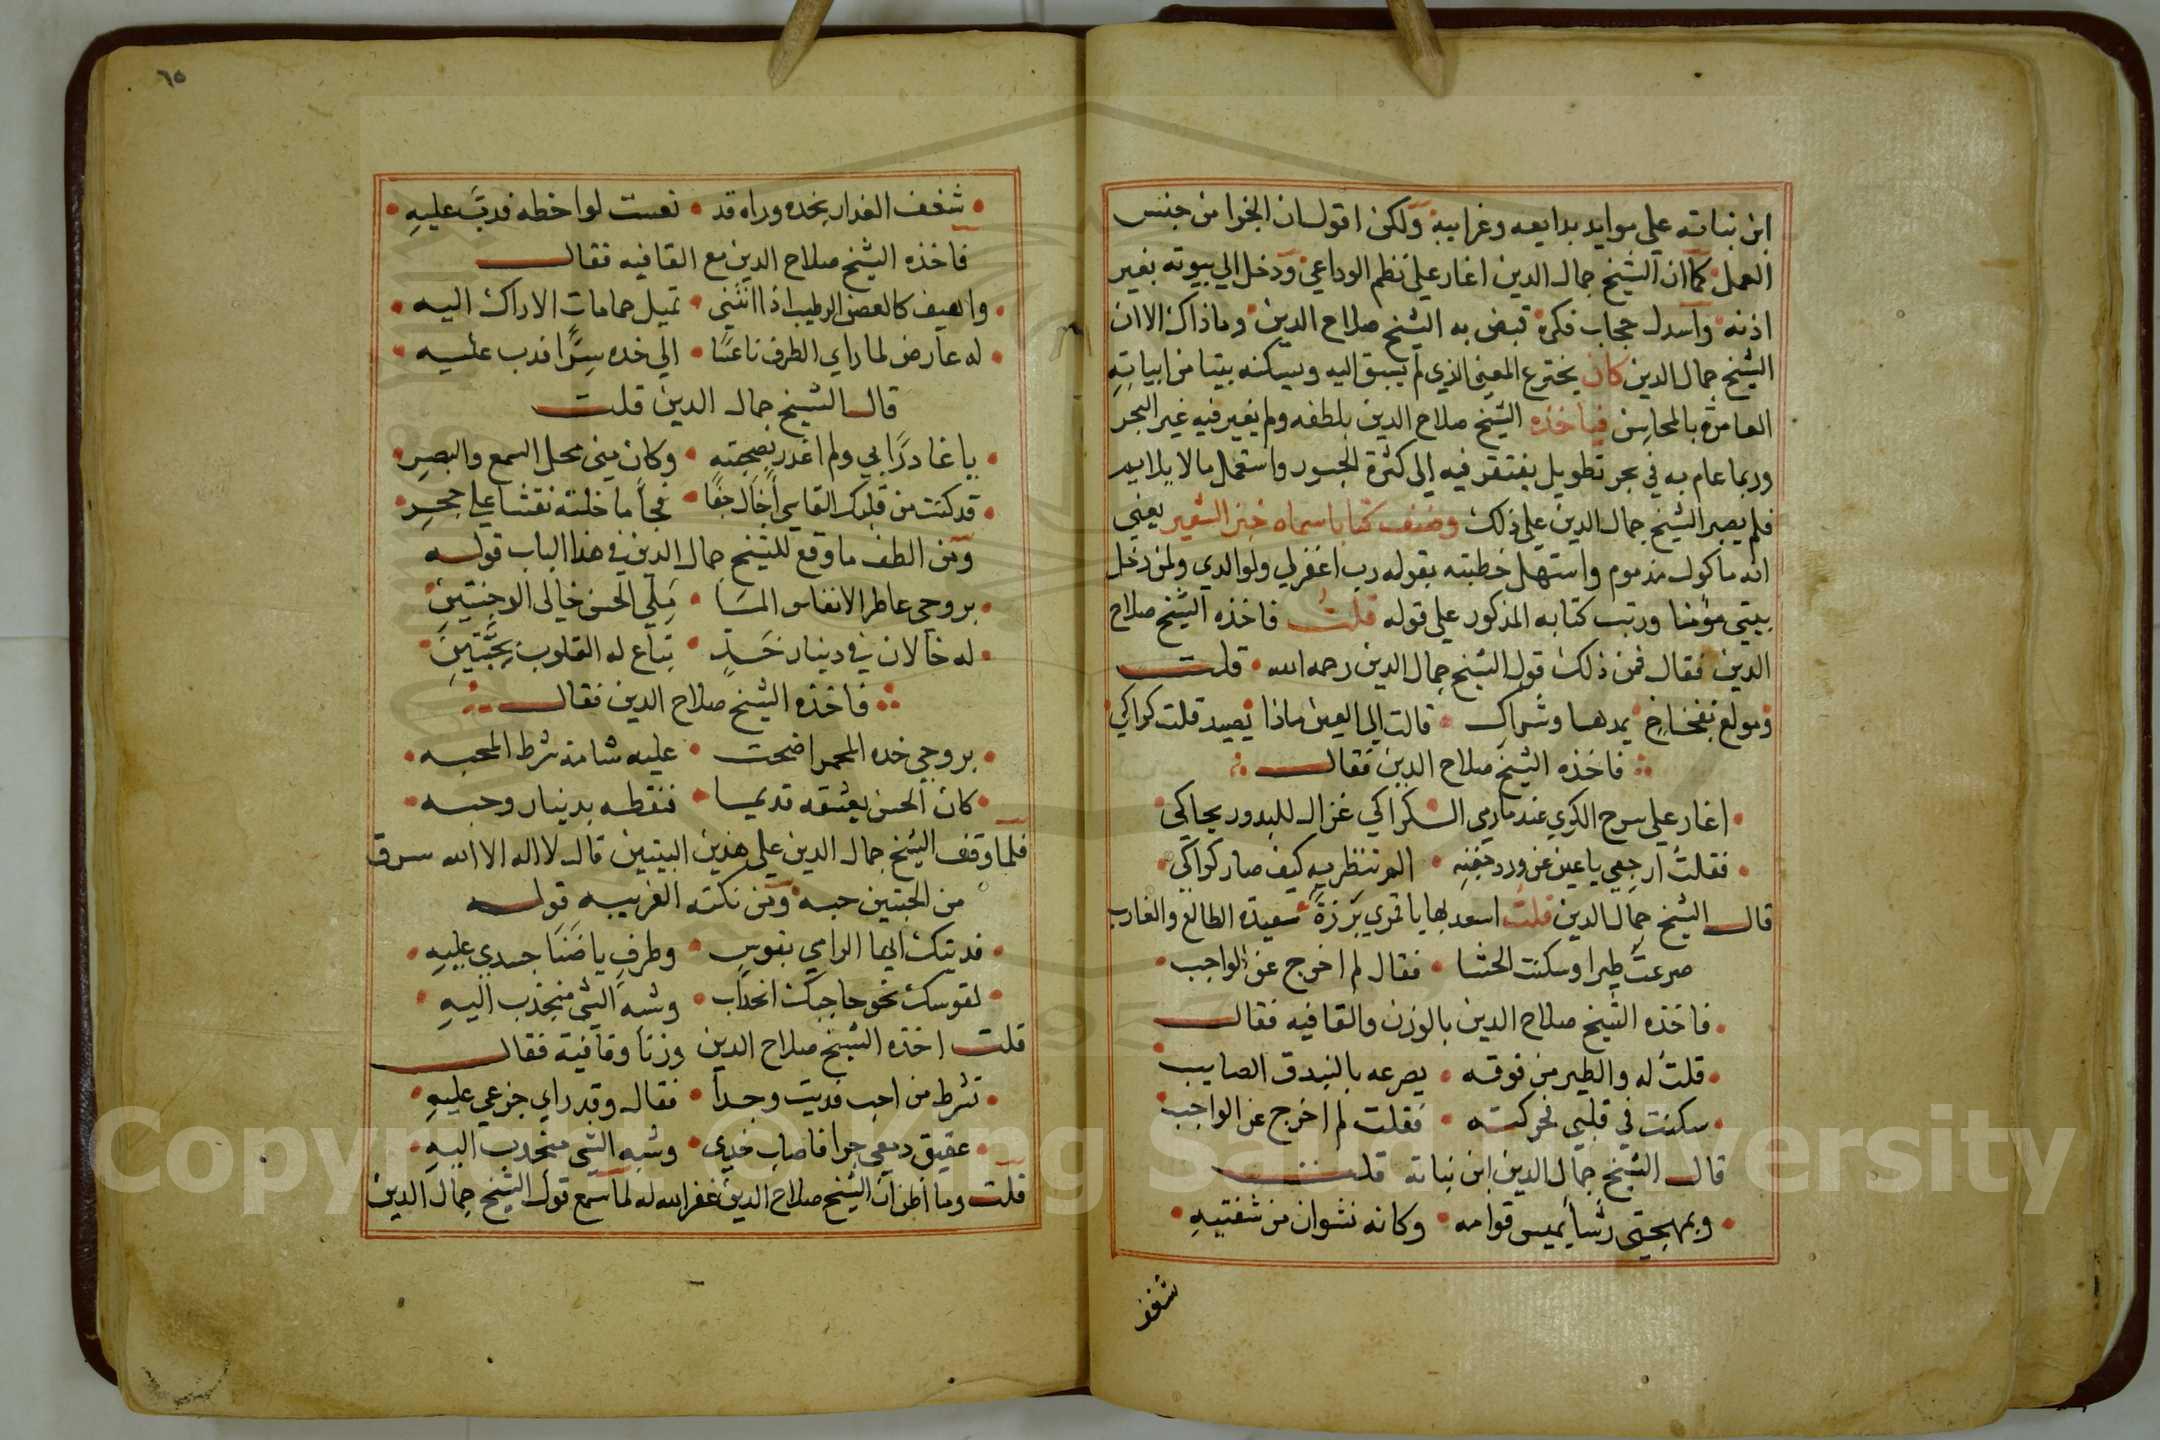 ابن نباته علي موايد بدايعه وغرايبه ولكن اقول ان الجزا من جنس
العمل كما ان الشيخ جمال الدين اغار علي نظم الوداعي ودخل الي بيوته بغير
اذنه واسدل حجاب فكره قيض به الشيخ صلاح الدين وماذاك الا ان
الشيخ جمال الدين كان يخترع المعني الذي لم يسبق اليه ويسكنه بيتا من ابياته
العامرة بالمحاسن فياخذه الشيخ صلاح الدين بلفظه ولم يغير فيه غير البحر
وربما عام به في بحر تطويل يفتقر فيه إلى كثرة الحسو واستعمل مالا يلايم
فلم يصبر الشيخ جمال الدين علي ذلك وصنف كتابا سماه خبز الشعير يعني
انه ماكول مذموم واستهل خطبته بقوله رب اغفرلي ولوالدي ولمن دخل
بيتي مؤمنا ورتب كتابه المذكور علي قوله قلت فاخذه الشيخ صلاح
الدين فقال فمن ذلك قول الشيخ جمال الدين رحمه الله قلت
ومولع بفخاخ يمدها وشراك قالت لي العين ماذا يصيد قلت كراكي
فاخذه الشيخ صلاح الدين فقال
اغار علي سرح الكري عند مارمي الكراكي غزال للبدور يحاكي
فقلت ارجعي يا عين عن ورد حسنه الم تنظريه كيف صار كراكي
قال الشيخ جمال الدين قلت اسعد بها يا قمري برزة سعيدة الطالع والغارب
صرعت طيرا وسكنت الحشا فقال لم اخرج عن الواجب
فاخذه الشيخ صلاح الدين بالوزن والقافيه فقال
قلت له والطير من فوقه يصرعه بالبندق الصايب
سكنت في قلبي فحركته فقلت لم اخرج عن الواجب
قال الشيخ جمال الدين ابن نباته قلت
وبمهجتي رشأ يميس قوامه وكانه نشوان من شفتيه
شغف
٦٥
شغف العذار بخده وراه قد نعست لواحظه فدب عليه
فاخذه الشيخ صلاح الدين مع القافيه فقال
واهيف كالغصن الرطيب اذا انثني تميل حمامات الاراك اليه
له عارض لما راي الطرف ناعسا الي خده سرا فدب عليه
قال الشيخ جمال الدين قلت
يا غادرا بي ولم اغدر بصحبته وكان مني محل السمع والبصر
قد كنت من قلبك القاسي اخال جفا فجأ ما خلته نقشا علي حجر
ومن الطف ما وقع للشيخ جمال الدين في هذا الباب قوله
بروحي عاطر الانفاس المسا ملي الحسن خالي الوجنتين
له خالان في دينار خد تباع له القلوب بحبتين
فاخذه الشيخ صلاح الدين فقال
بروحي خده المحمر اضحت عليه شامة شرط المحبه
كان الحسن يعشقه قديما فنقطه بدينار وحبه
فلما وقف الشيخ جمال الدين علي هذين البيتين قال لااله الا الله سرق
من الحبتين حبه ومن نكته الغريبه قوله
فديتك ايها الرامي بقوس وطرف يا ضنا جسدي عليه
لقوسك نحو حاجبك انجذاب وشبه الشي منجذب اليه
قلت اخذه الشيخ صلاح الدين وزنا وقافية فقال
تشرط من احب فديت وجدا فقال وقد راي جزعي عليه
عقيق دمعي جرا فاصاب خدي وشبه الشي منجذب اليه
قلت وما أظن ان الشيخ صلاح الدين غفر الله له لما سمع قول الشيخ جمال الدين
Copyright © King Saud University
1957